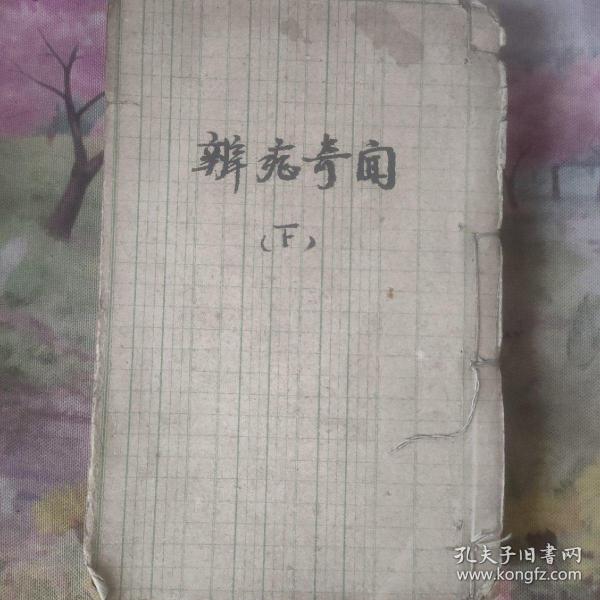 辨症奇闻
(下)
孔夫子旧書网
www.kongfz.com